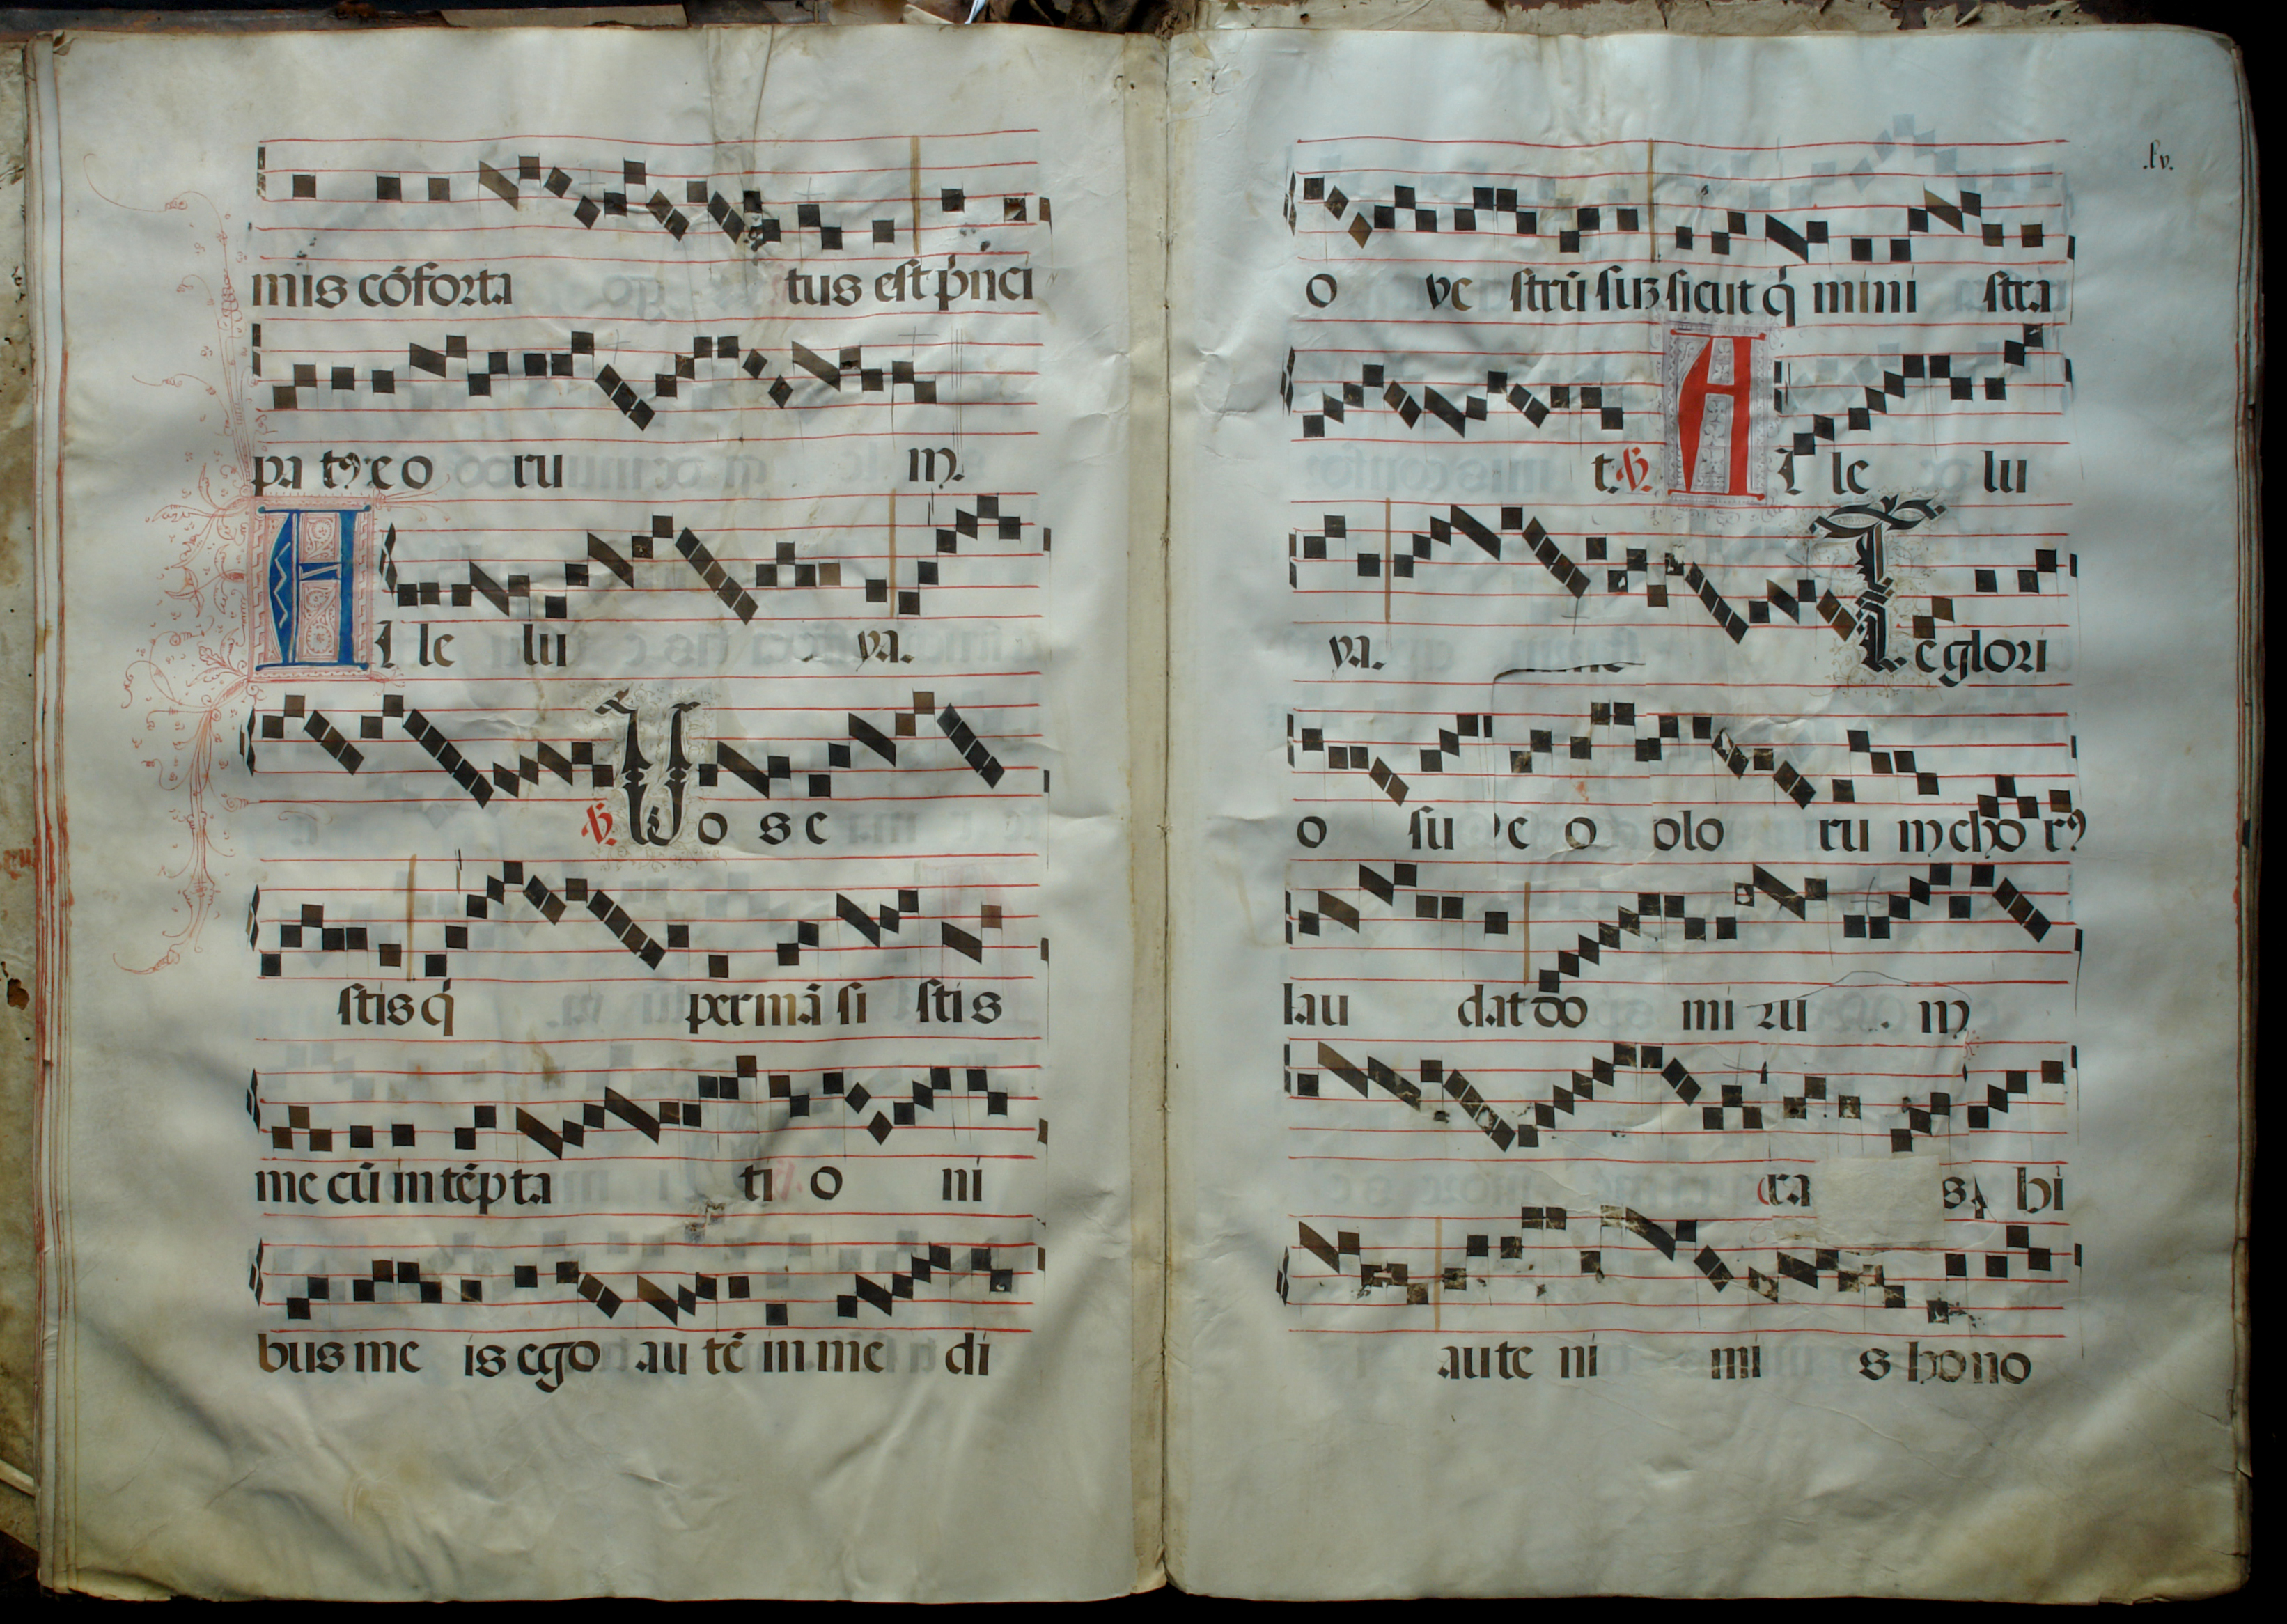 mis cõforta tus est p̃nci
pa tꝰ eo ru m.
A l le lu ya.
℣. Uo s e
stis q̃ permã si stis
me cũ in tẽpta ti o ni
bus me is ego au tẽ in me di
.lv.
o ve strũ suꝫ sicut q̃ mini stra
t. ℣. A l le lu
ya. Te glori
o su s o olo ru m cho rꝰ
lau dat do mi ru m
ra s, bi
aute ni mi s hono